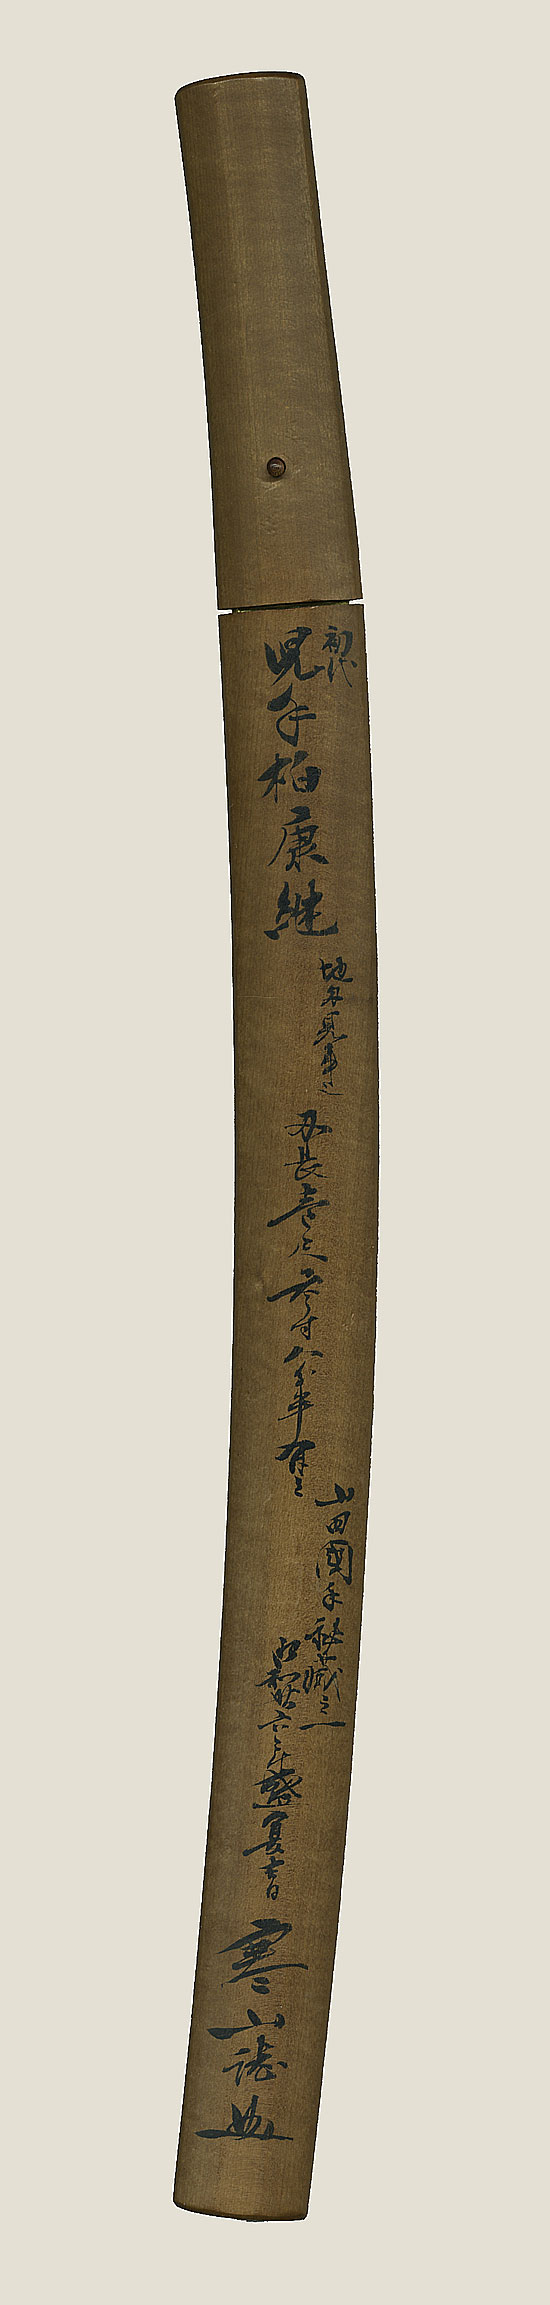 初代
児手柏康継
地刃見事也
刃長壱尺参寸八分半有之
山田國手秘蔵之一
昭和廿六年盛夏吉日
寒山誌